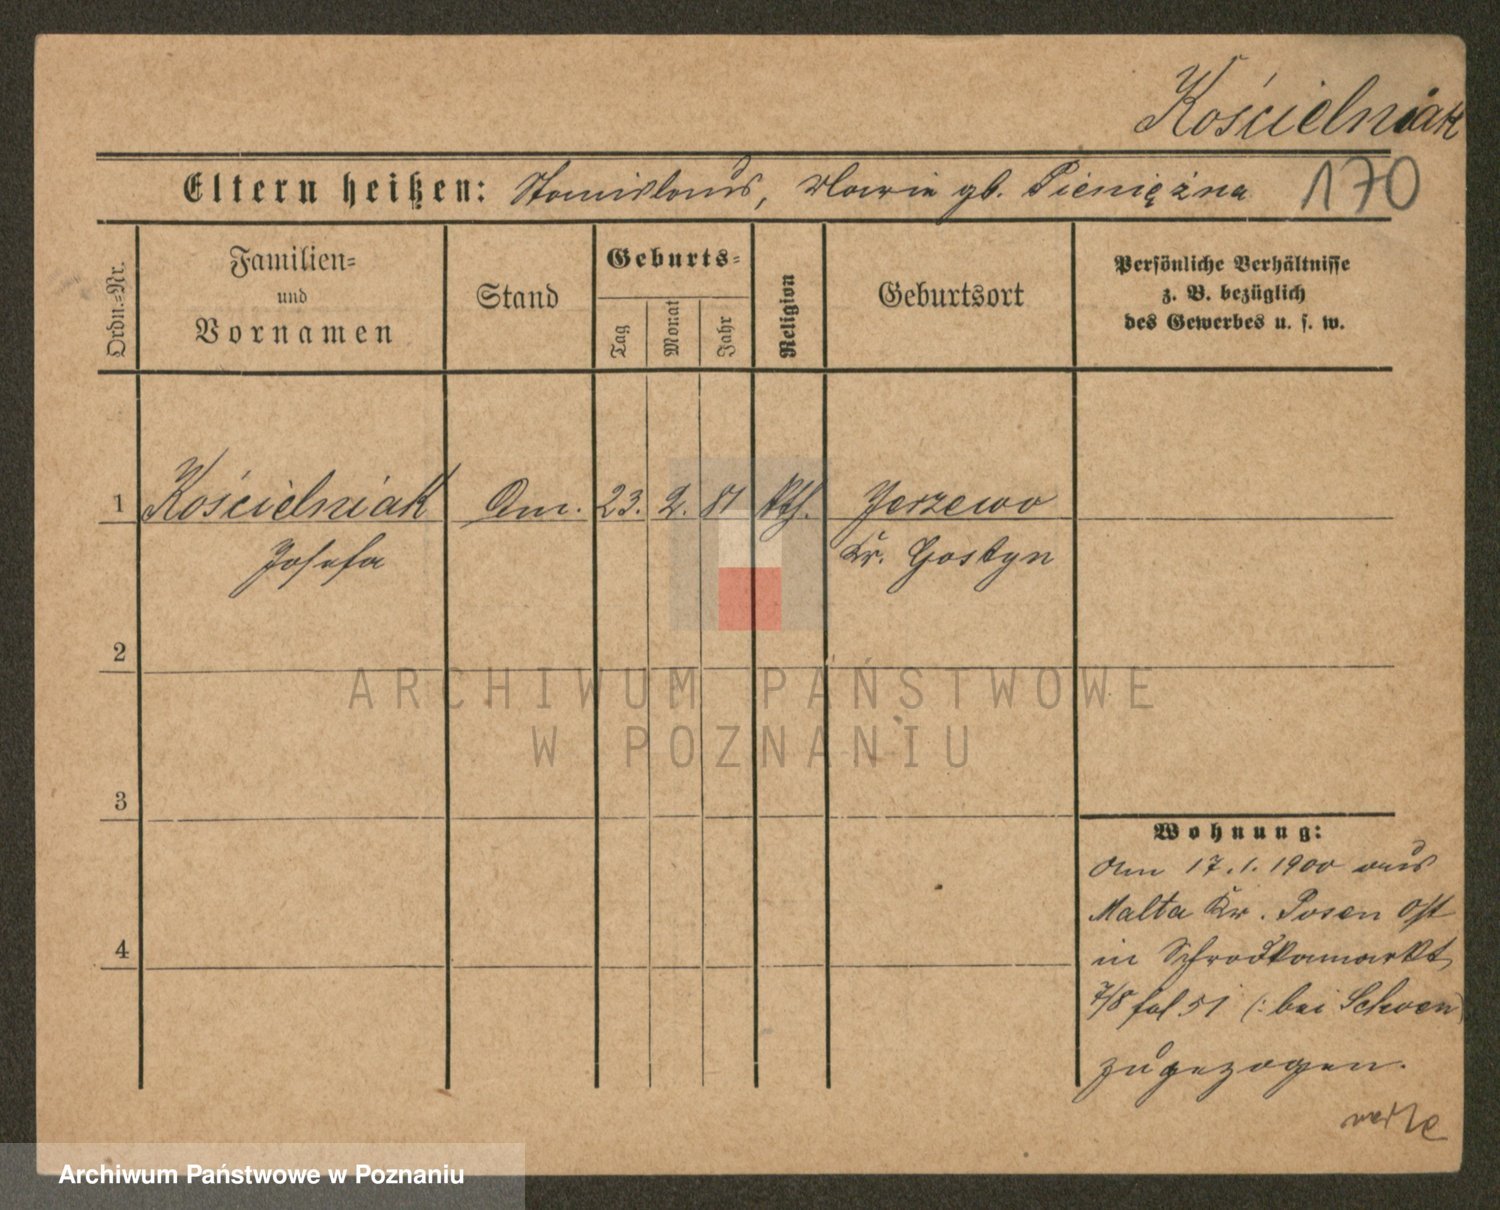 Kościelniak
Eltern heißen: Stanislaus, Marie gb. Pieniężna 170
Ordn.=Nr.
Familien=
und
Vornamen
Stand
Geburts=
Tag
Monat
Jahr
Religion
Geburtsort
Persönliche Verhältnisse
z. B. bezüglich
des Gewerbes u. s. w.
1 Kościelniak 23. 2. 81 kth. Jerzewo
Josefa Kr. Gostyn
2
ARCHIWUM PAŃSTWOWE
W POZNANIU
3
Wohnung:
Am 17.1.1900 aus
Malta Kr. Posen Ost
in Schrodkamarkt
7/8 fol 51 (: bei
zugezogen.
4
Archiwum Państwowe w Poznaniu